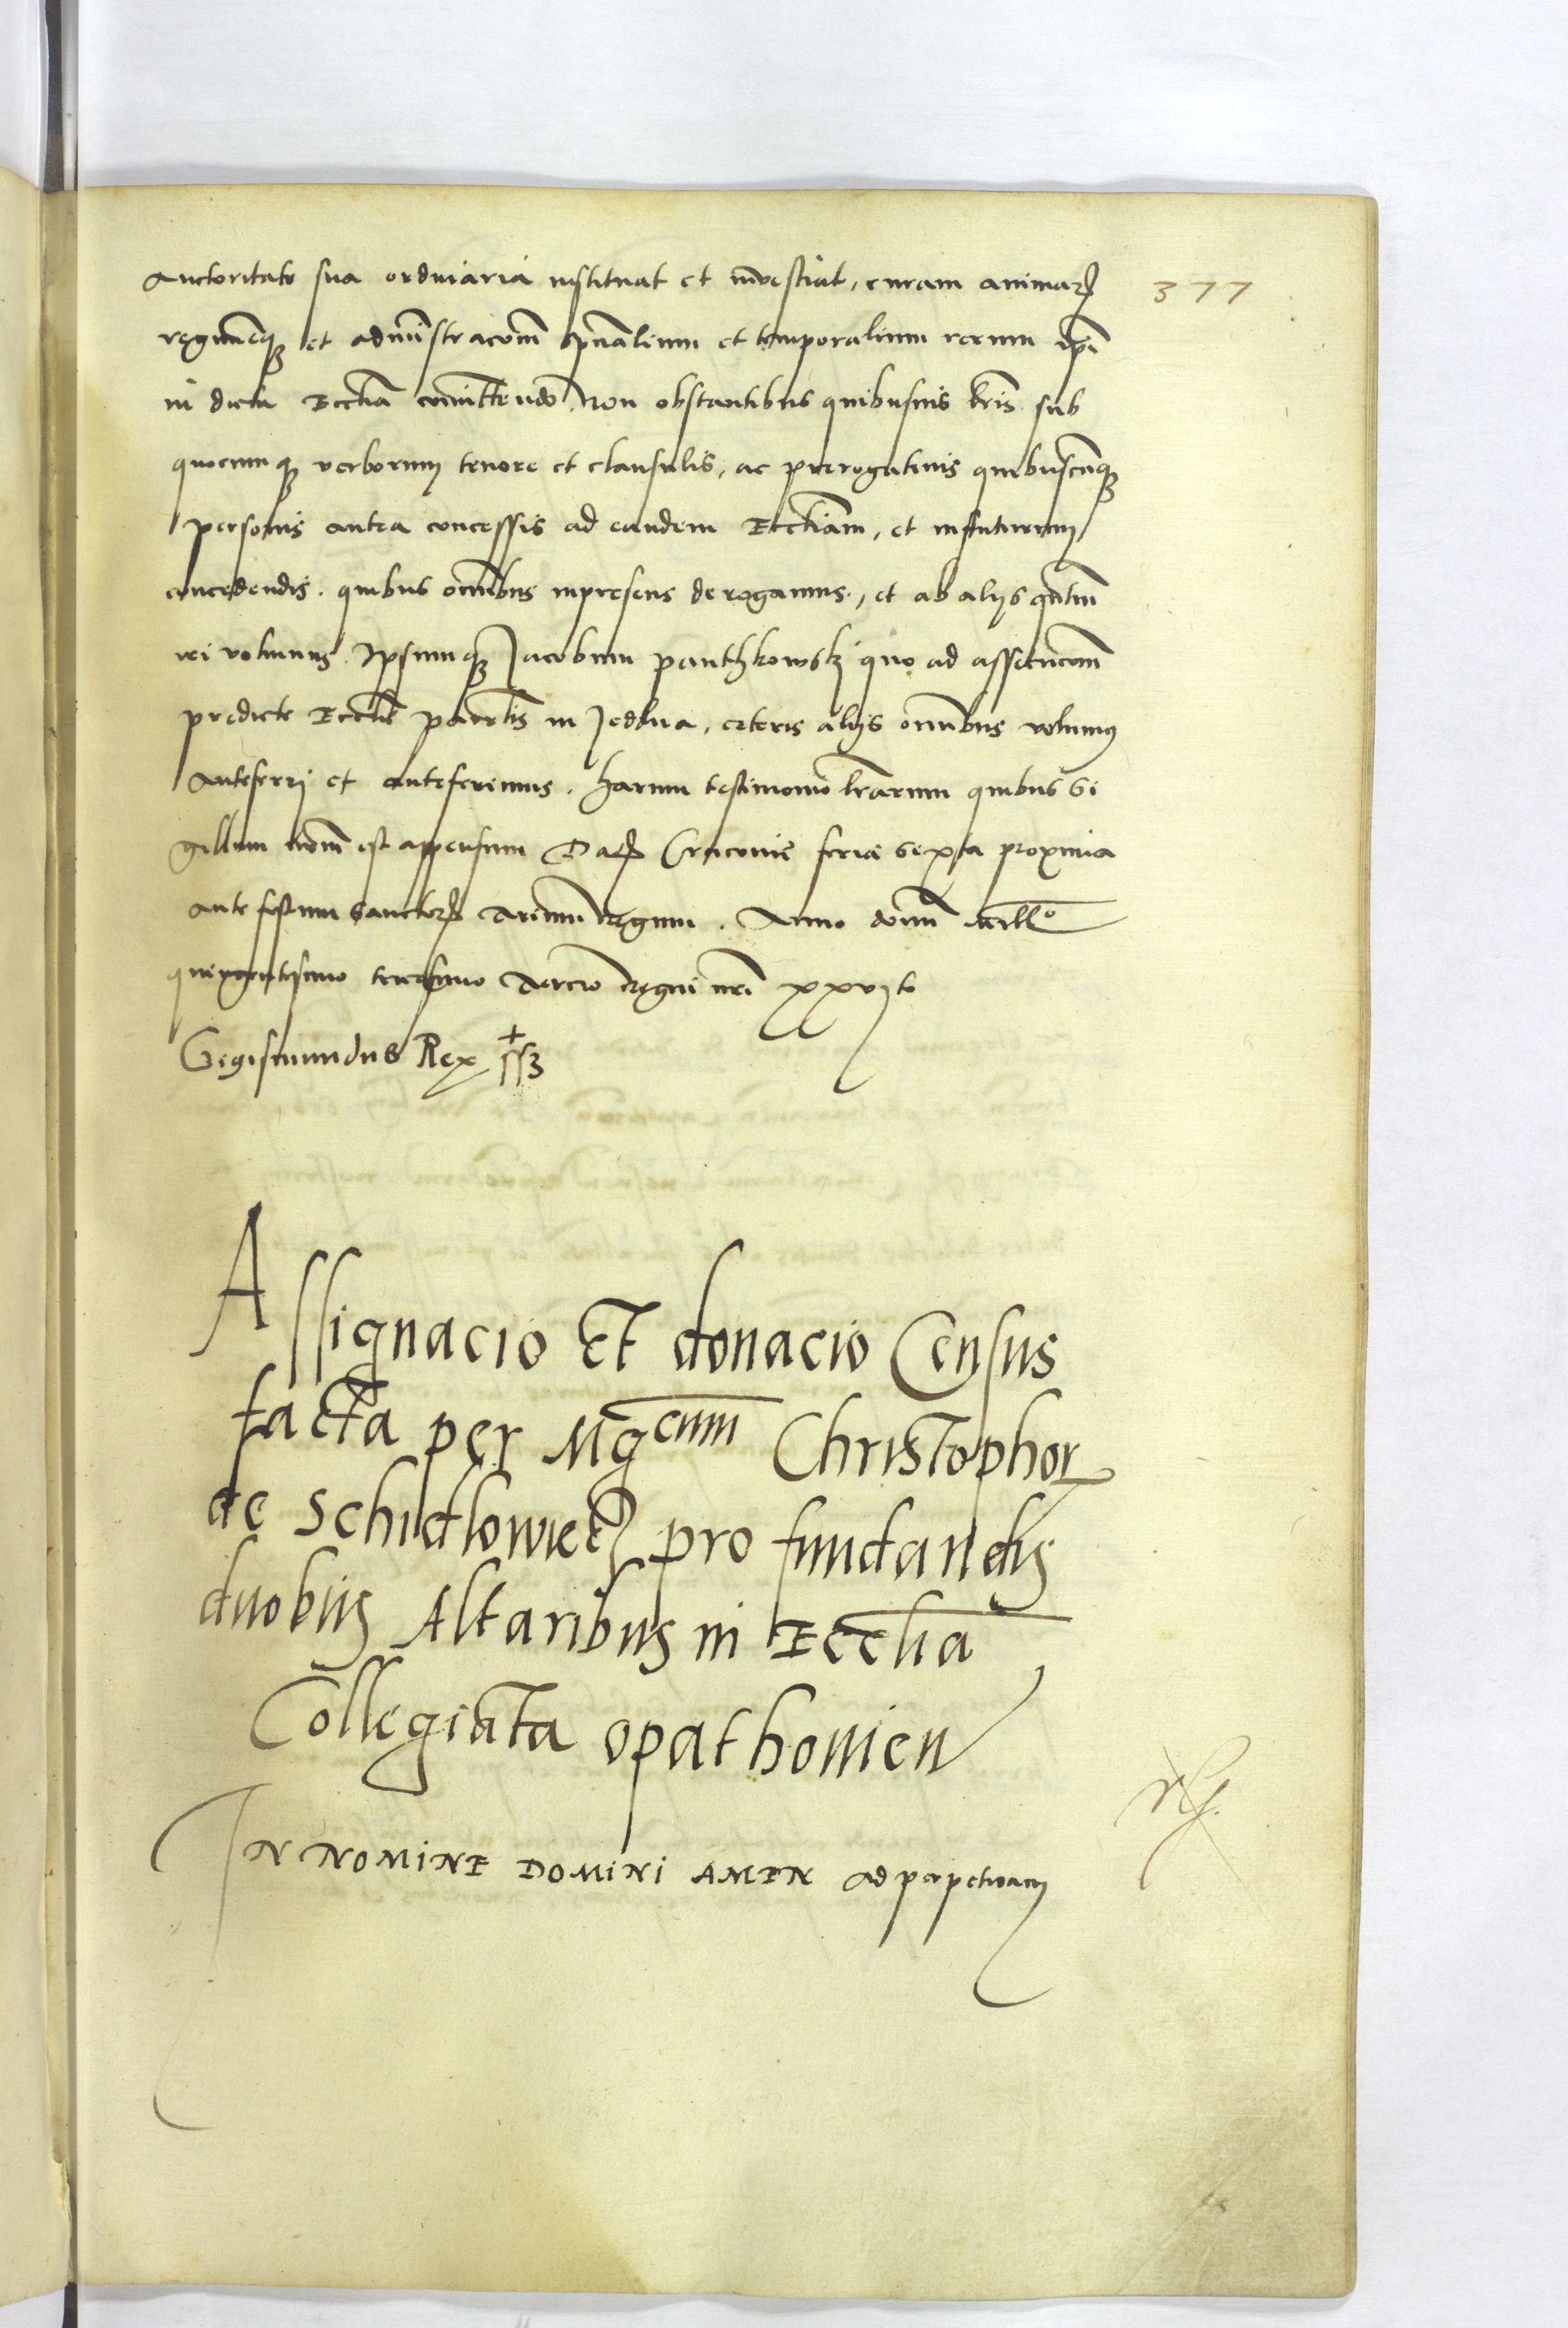 377
auctoritate sua ordinaria instituat et investiat, curam animarꝝ
regimenqꝫ et administracōem spūalium et temporalium rerum ipī
in dicta Eccliā committendo, non obstantibus quibusvis lrīs sub
quocumqꝫ verborum tenore et clausulis, ac prerogativis quibuscūqꝫ
personis antea concessis ad eandem Eccliam, et infuturum
concedendis. quibus omībus inpresens derogamus, et ab alijs
volumus. Ipsumqꝫ Jacobum panthkowskj quo ad assecucōem
predicte Ecclīe parrōlis in Jedlna, ceteris alijs omībus volumus
anteferri et anteferimus. harum testimonio lrārum quibus si
gillum nrūm est appensum Datꝝ Cracovie feria sexta proxima
ante festum sanctorꝝ trium regum. Anno domī mill̄o
quingentesimo tricesimo tercio regni nrī xxvijto
Sigismundus Rex sst
Assignacio Et donacio Census
facta per Mgcum Christophor
de Schidlowiecz pro fundandis
duobus Altaribus in Ecclia
Collegiata opathowien
In NOMINE DOMINI AMEN ad perpetuam